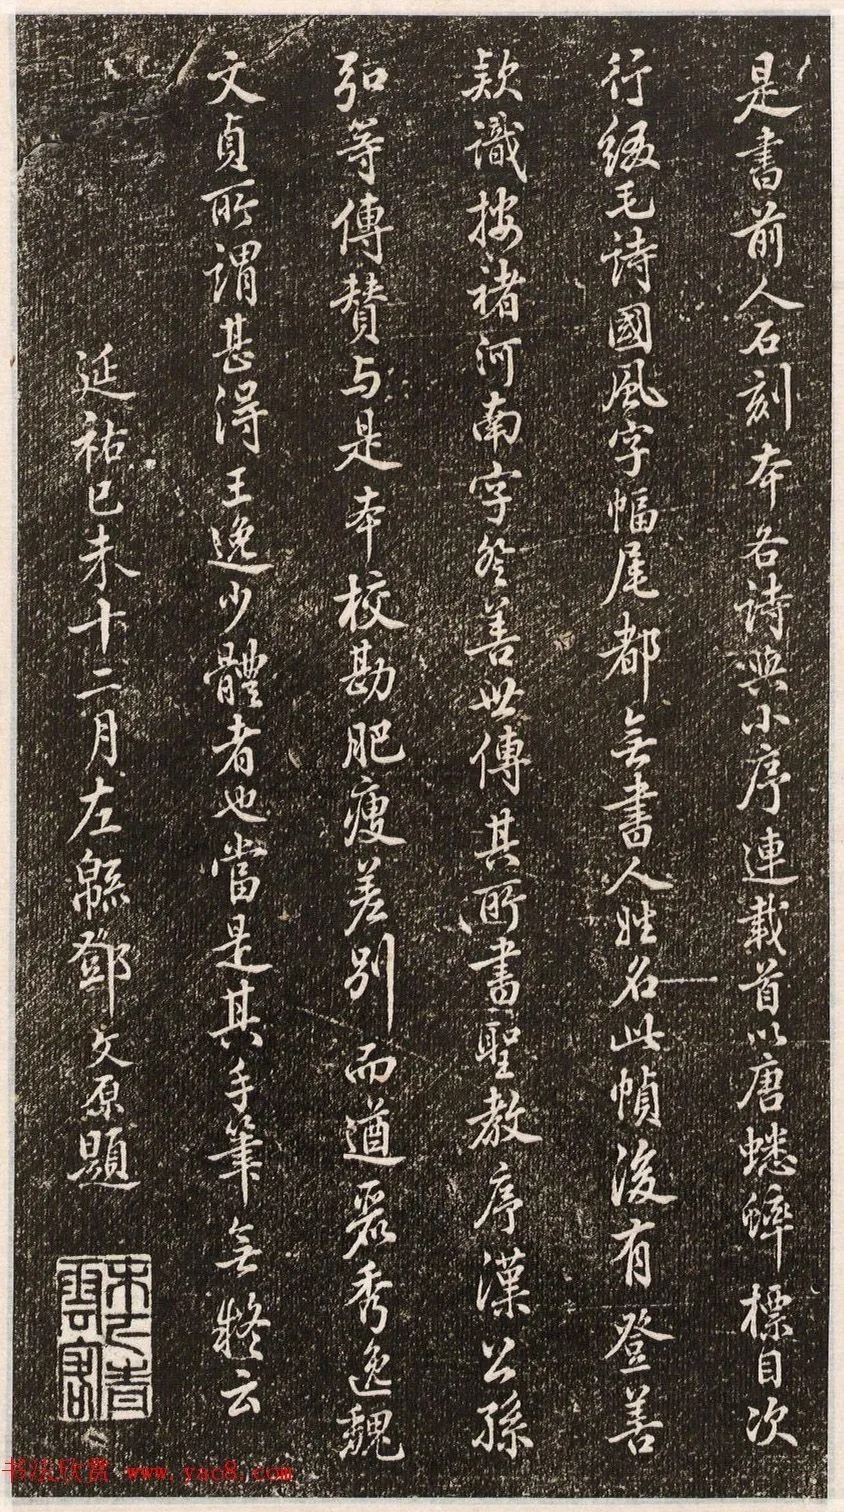 是書前人石刻本各詩與小序連載首以唐蟋蟀標目次
行綴毛詩國風字幅尾都無書人姓名此幀後有登善
款識按褚河南字登善世傳其所書聖教序漢公孫
弘等傳贊与是本校勘肥瘦差別而遒麗秀逸魏
文貞所謂甚得王逸少體者也當是其手筆無疑云
延祐己未十二月左緜鄧文原題
书法欣赏 www.yac8.com